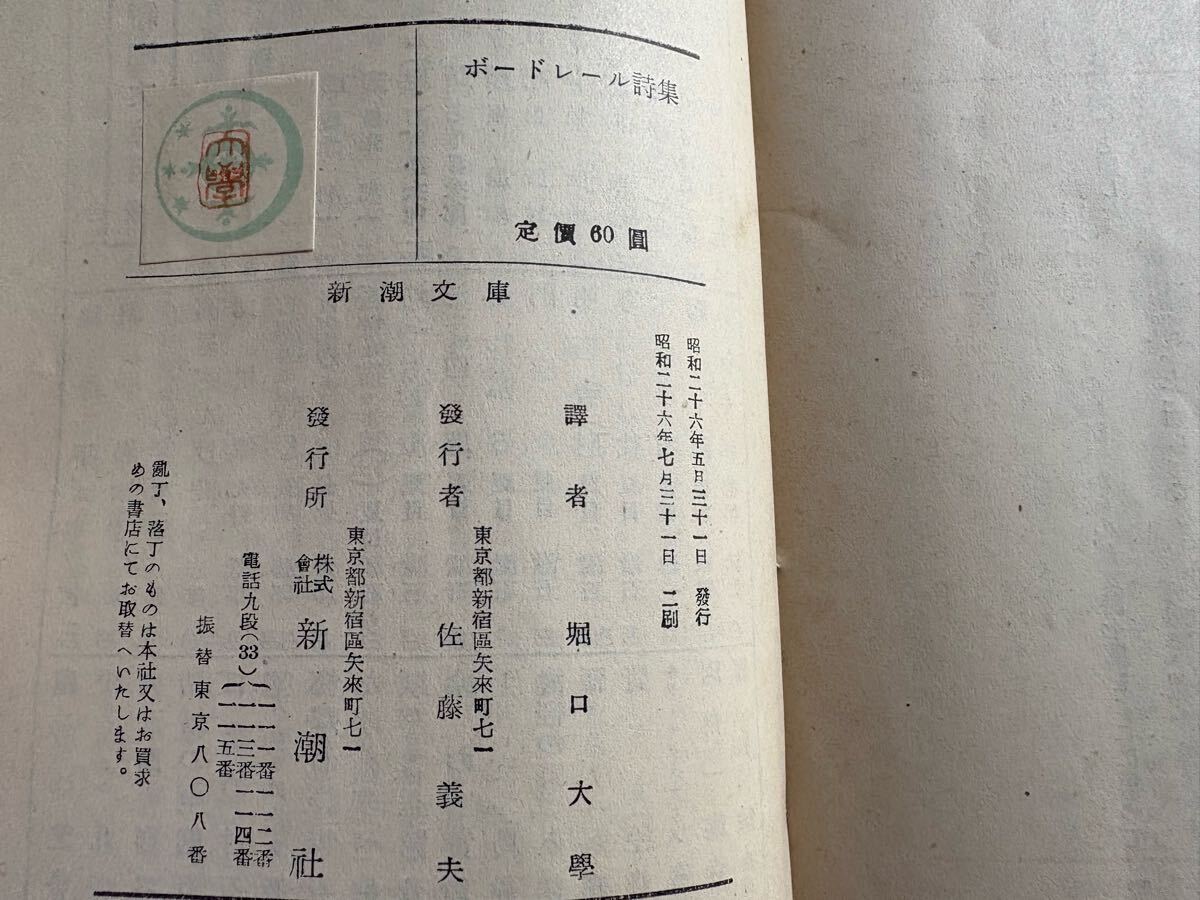 ボードレール詩集
定價60圓
大學
新潮文庫
昭和二十六年五月三十一日 發行
昭和二十六年七月三十一日 二刷
譯者 堀口大學
東京都新宿區矢來町七一
發行者 佐藤義夫
東京都新宿區矢來町七一
發行所 株式會社 新潮社
電話九段(33)
一一一番一一二番
一一三番一一四番
一一五番
振替東京八〇八番
亂丁、落丁のものは本社又はお買求
めの書店にてお取替へいたします。